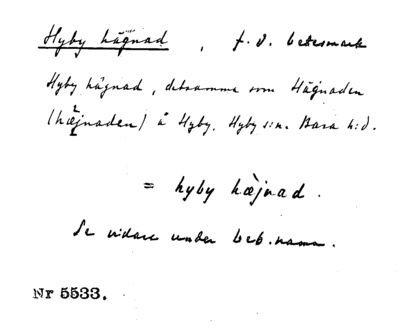 Hyby hägnad, f. d. betesmark
Hyby hägnad, detsamma som Hägnaden
(hæ̀jnaden) å Hyby. Hyby s:n. Bara h:d.
= hyby hæ̀jnad.
Se vidare under beb.namn.
Nr 5533.